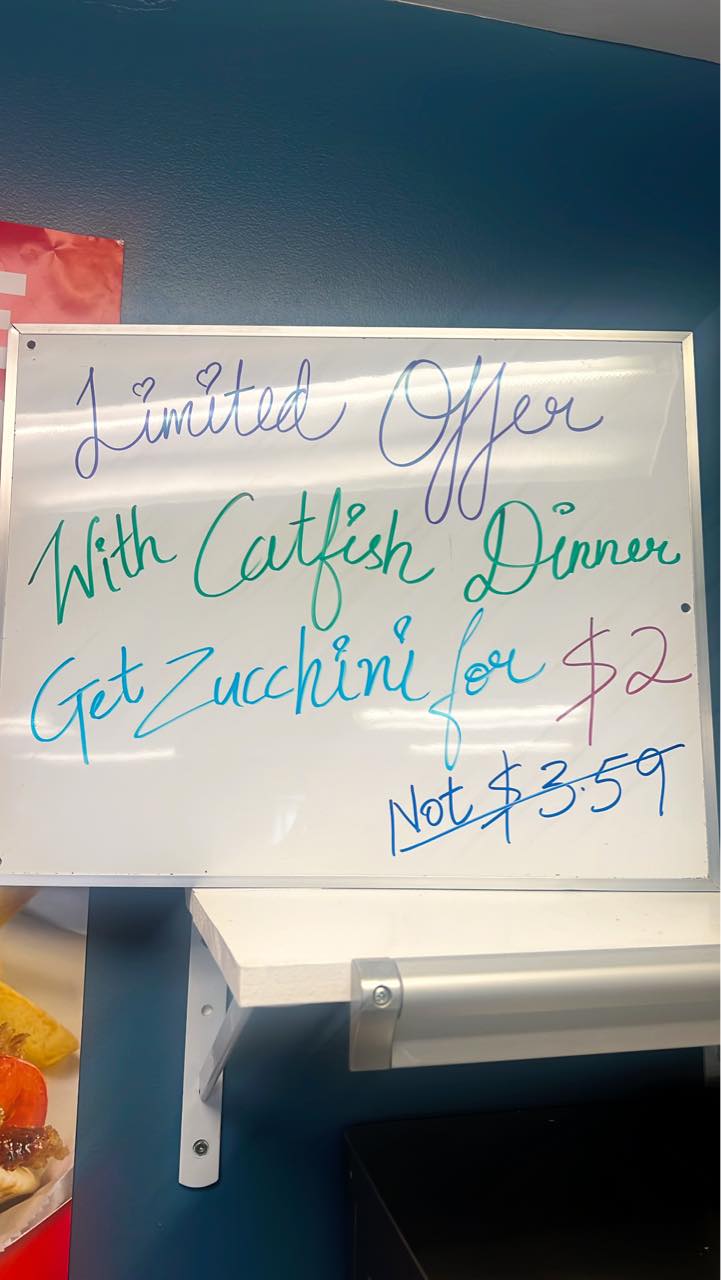 Limited Offer
With Catfish Dinner
Get Zucchini for $2
Not $3.59